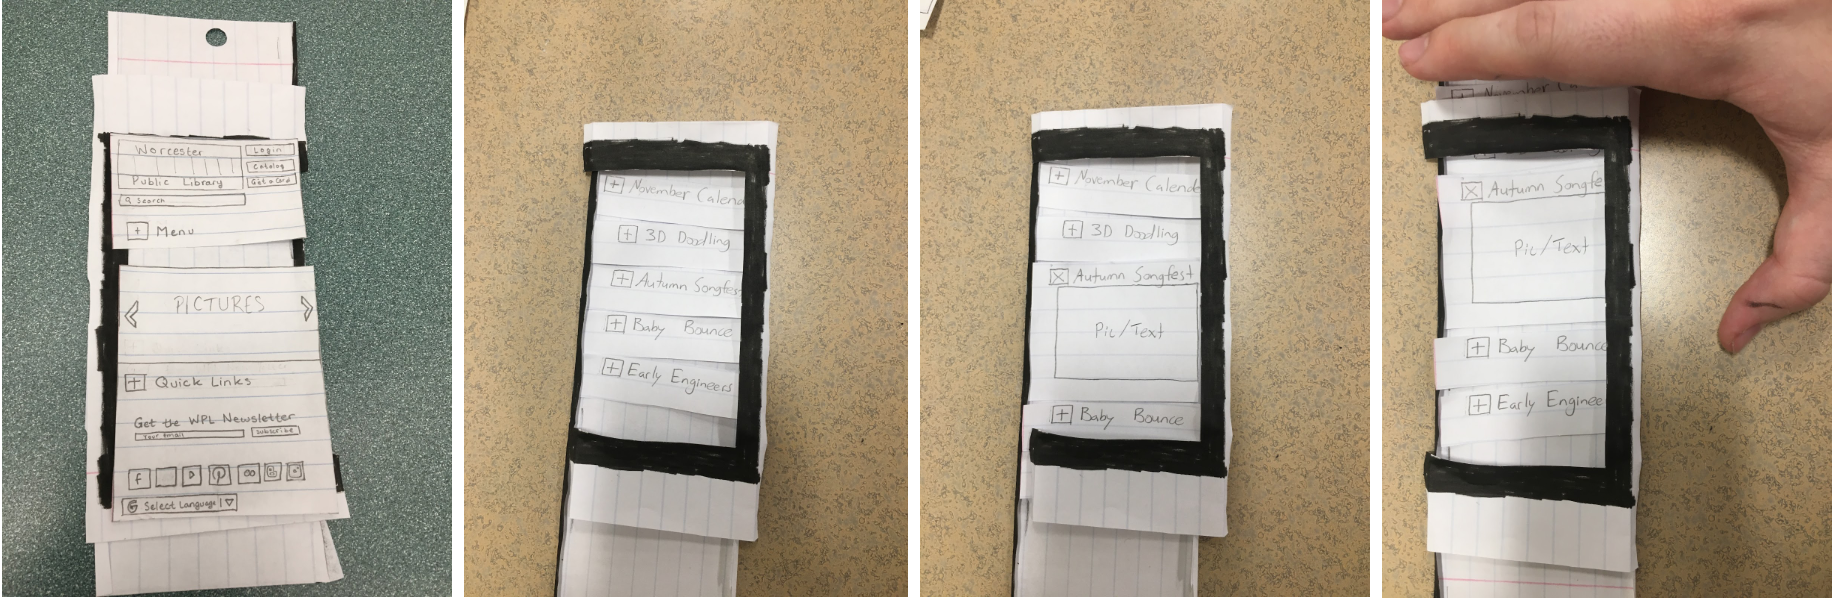 Worcester
Public Library
Login
Catalog
Get a Card
Search
+ Menu
PICTURES
+ Quick Links
Get the WPL Newsletter
Your email
Subscribe
f
Select Language
+ November Calenda
+ 3D Doodling
+ Autumn Songfest
+ Baby Bounce
+ Early Engineers
+ November Calende
+ 3D Doodling
X Autumn Songfest
Pic/Text
+ Baby Bounce
+ November Ca
X Autumn Songfe
Pic/Text
+ Baby Bounce
+ Early Enginee